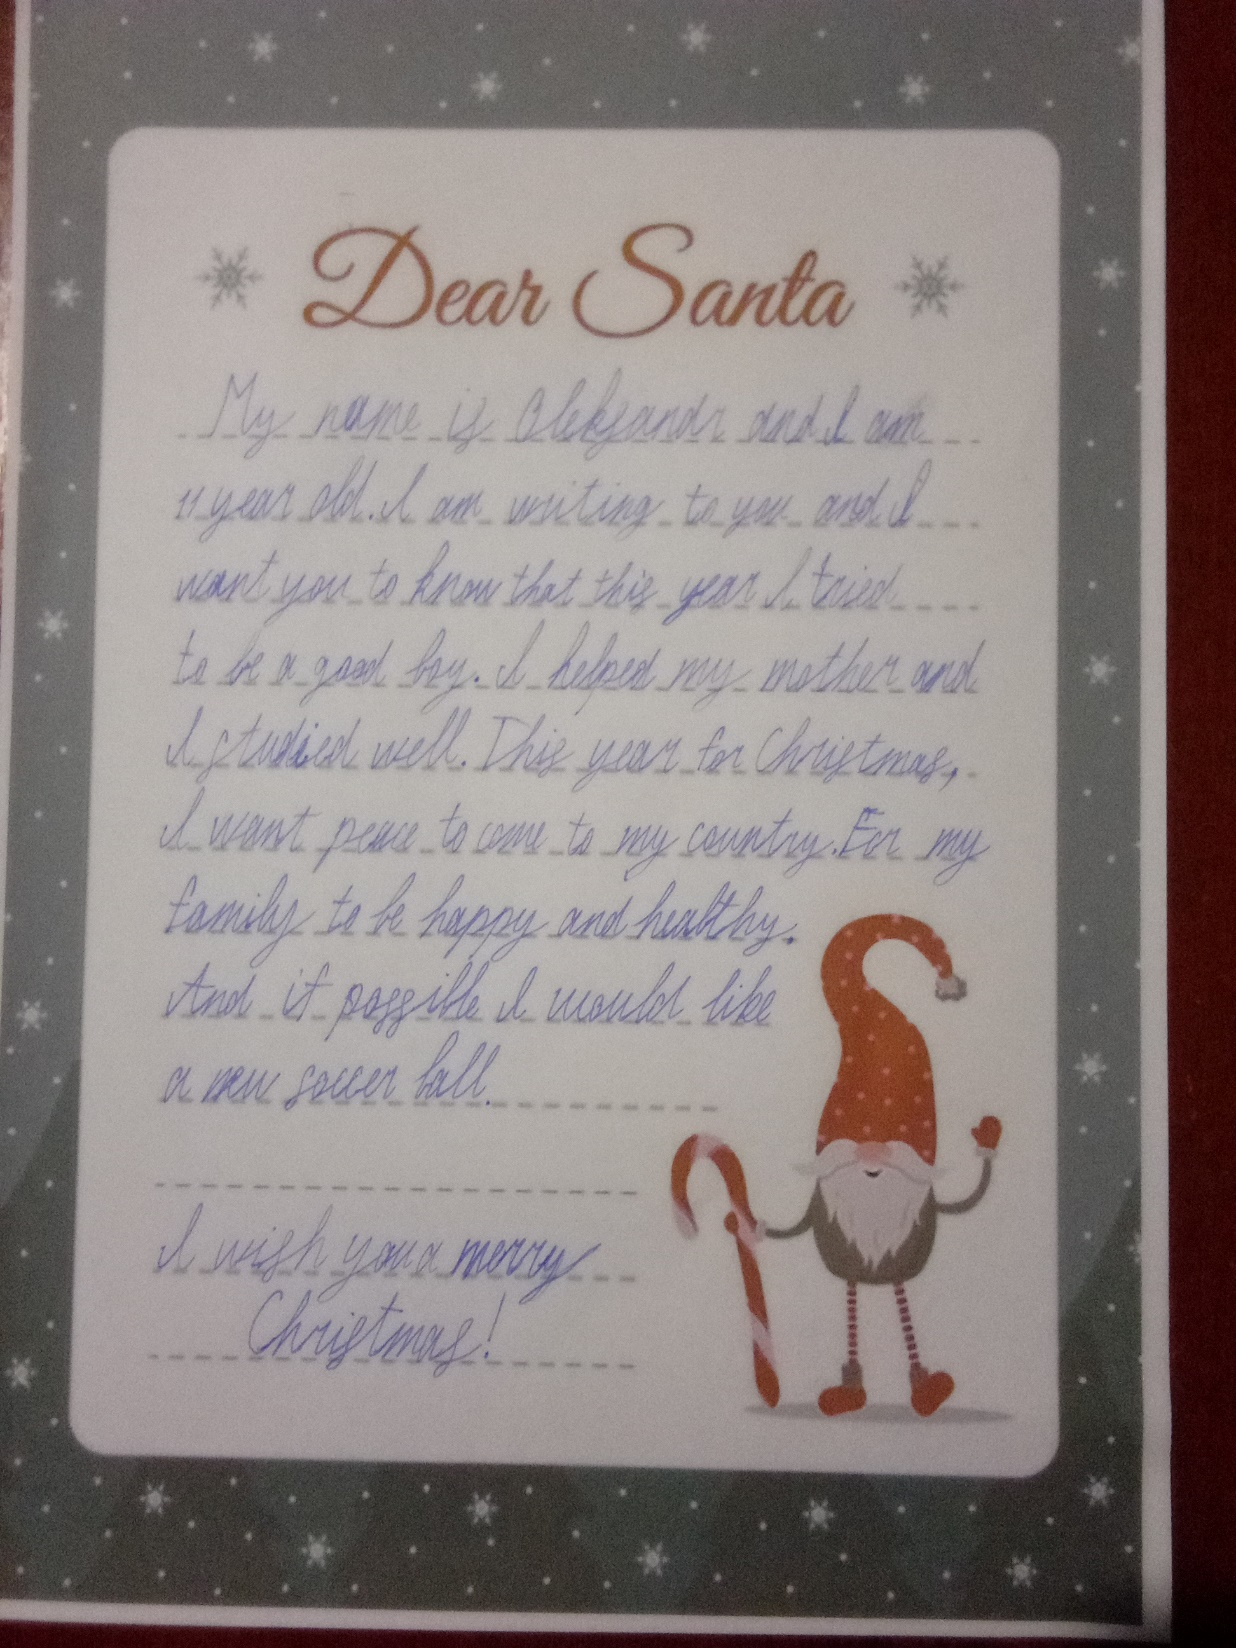 Dear Santa
My name is Oleksandr and I am
11 year old. I am writing to you and I
want you to know that this year I tried
to be a good boy. I helped my mother and
I studied well. This year for Christmas,
I want peace to come to my country. For my
family to be happy and healthy.
And if possible I would like
a new soccer ball.
I wish you a merry
Christmas!